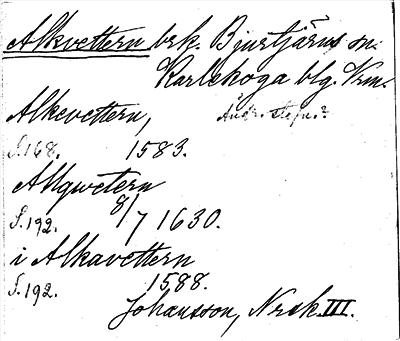 Alkvettern brk. Bjurtjärns sn.
Karlskoga blg. Vrm.
Alkevettern, Ändr. stafn.?
S. 168. 1583.
Allqwetern
S. 192. 8/7 1630.
i Alkavettern
S. 192. 1588.
Johansson, Nrsk. III.